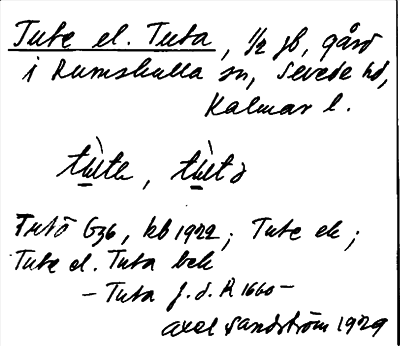 Tute el. Tuta, 1/2 jb, gård
i Rumskulla sn, Sevede hd,
Kalmar l.
tùte, tùta
Tutö G36, kb 1922; Tute ek;
Tute el. Tuta bek
- Tuta f. d. R 1660 -
Axel Sandström 1929